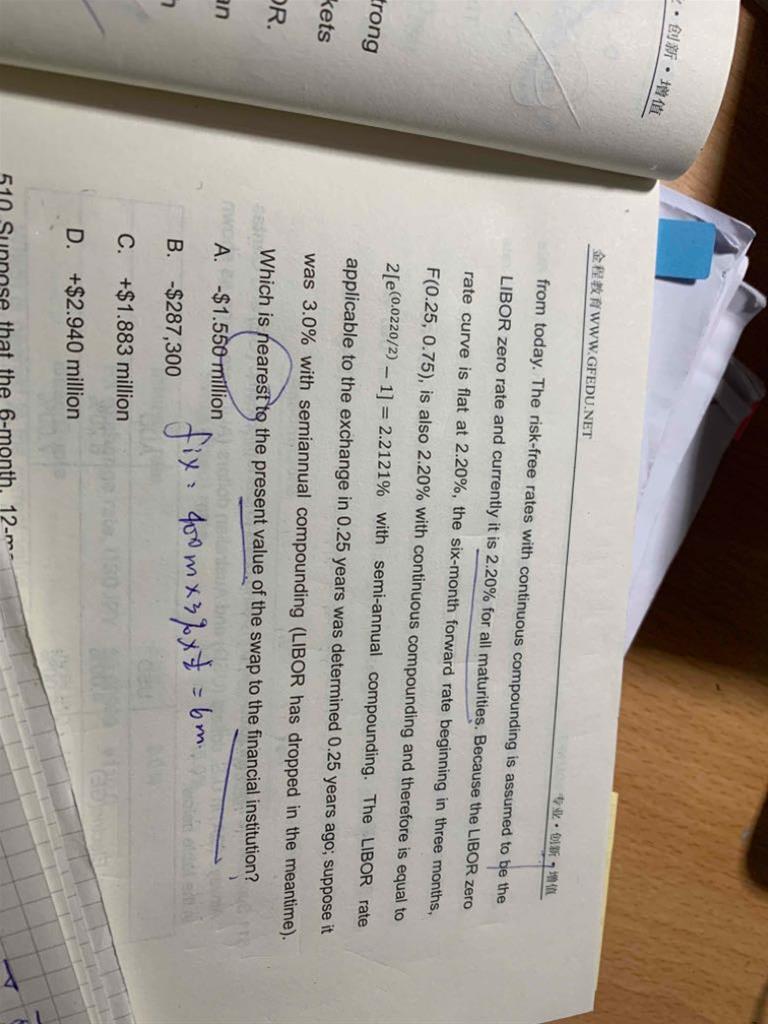 ·创新·增值
trong
kets
OR.
an
金程教育WWW.GFEDU.NET
专业·创新·增值
from today. The risk-free rates with continuous compounding is assumed to be the
LIBOR zero rate and currently it is 2.20% for all maturities. Because the LIBOR zero
rate curve is flat at 2.20%, the six-month forward rate beginning in three months,
F(0.25, 0.75), is also 2.20% with continuous compounding and therefore is equal to
2[e^(0.0220/2) − 1] = 2.2121% with semi-annual compounding. The LIBOR rate
applicable to the exchange in 0.25 years was determined 0.25 years ago; suppose it
was 3.0% with semiannual compounding (LIBOR has dropped in the meantime).
Which is nearest to the present value of the swap to the financial institution?
A. -$1.550 million
B. -$287,300
fix = 400m×3%×½ = 6m.
C. +$1.883 million
D. +$2.940 million
510 Suppose that the 6-month, 12-m